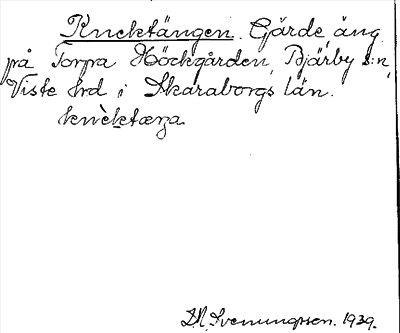 Knektängen. Gärde, äng
på Torpa Höckgården, Bjärby s:n,
Viste hrd i Skaraborgs län.
knèktæŋa
Svenungsson. 1939.